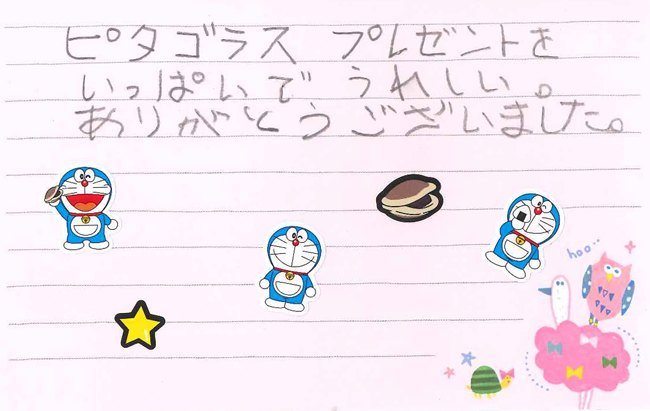 ピタゴラス プレゼントを
いっぱいで うれしい。
ありがとうございました。
hoo..